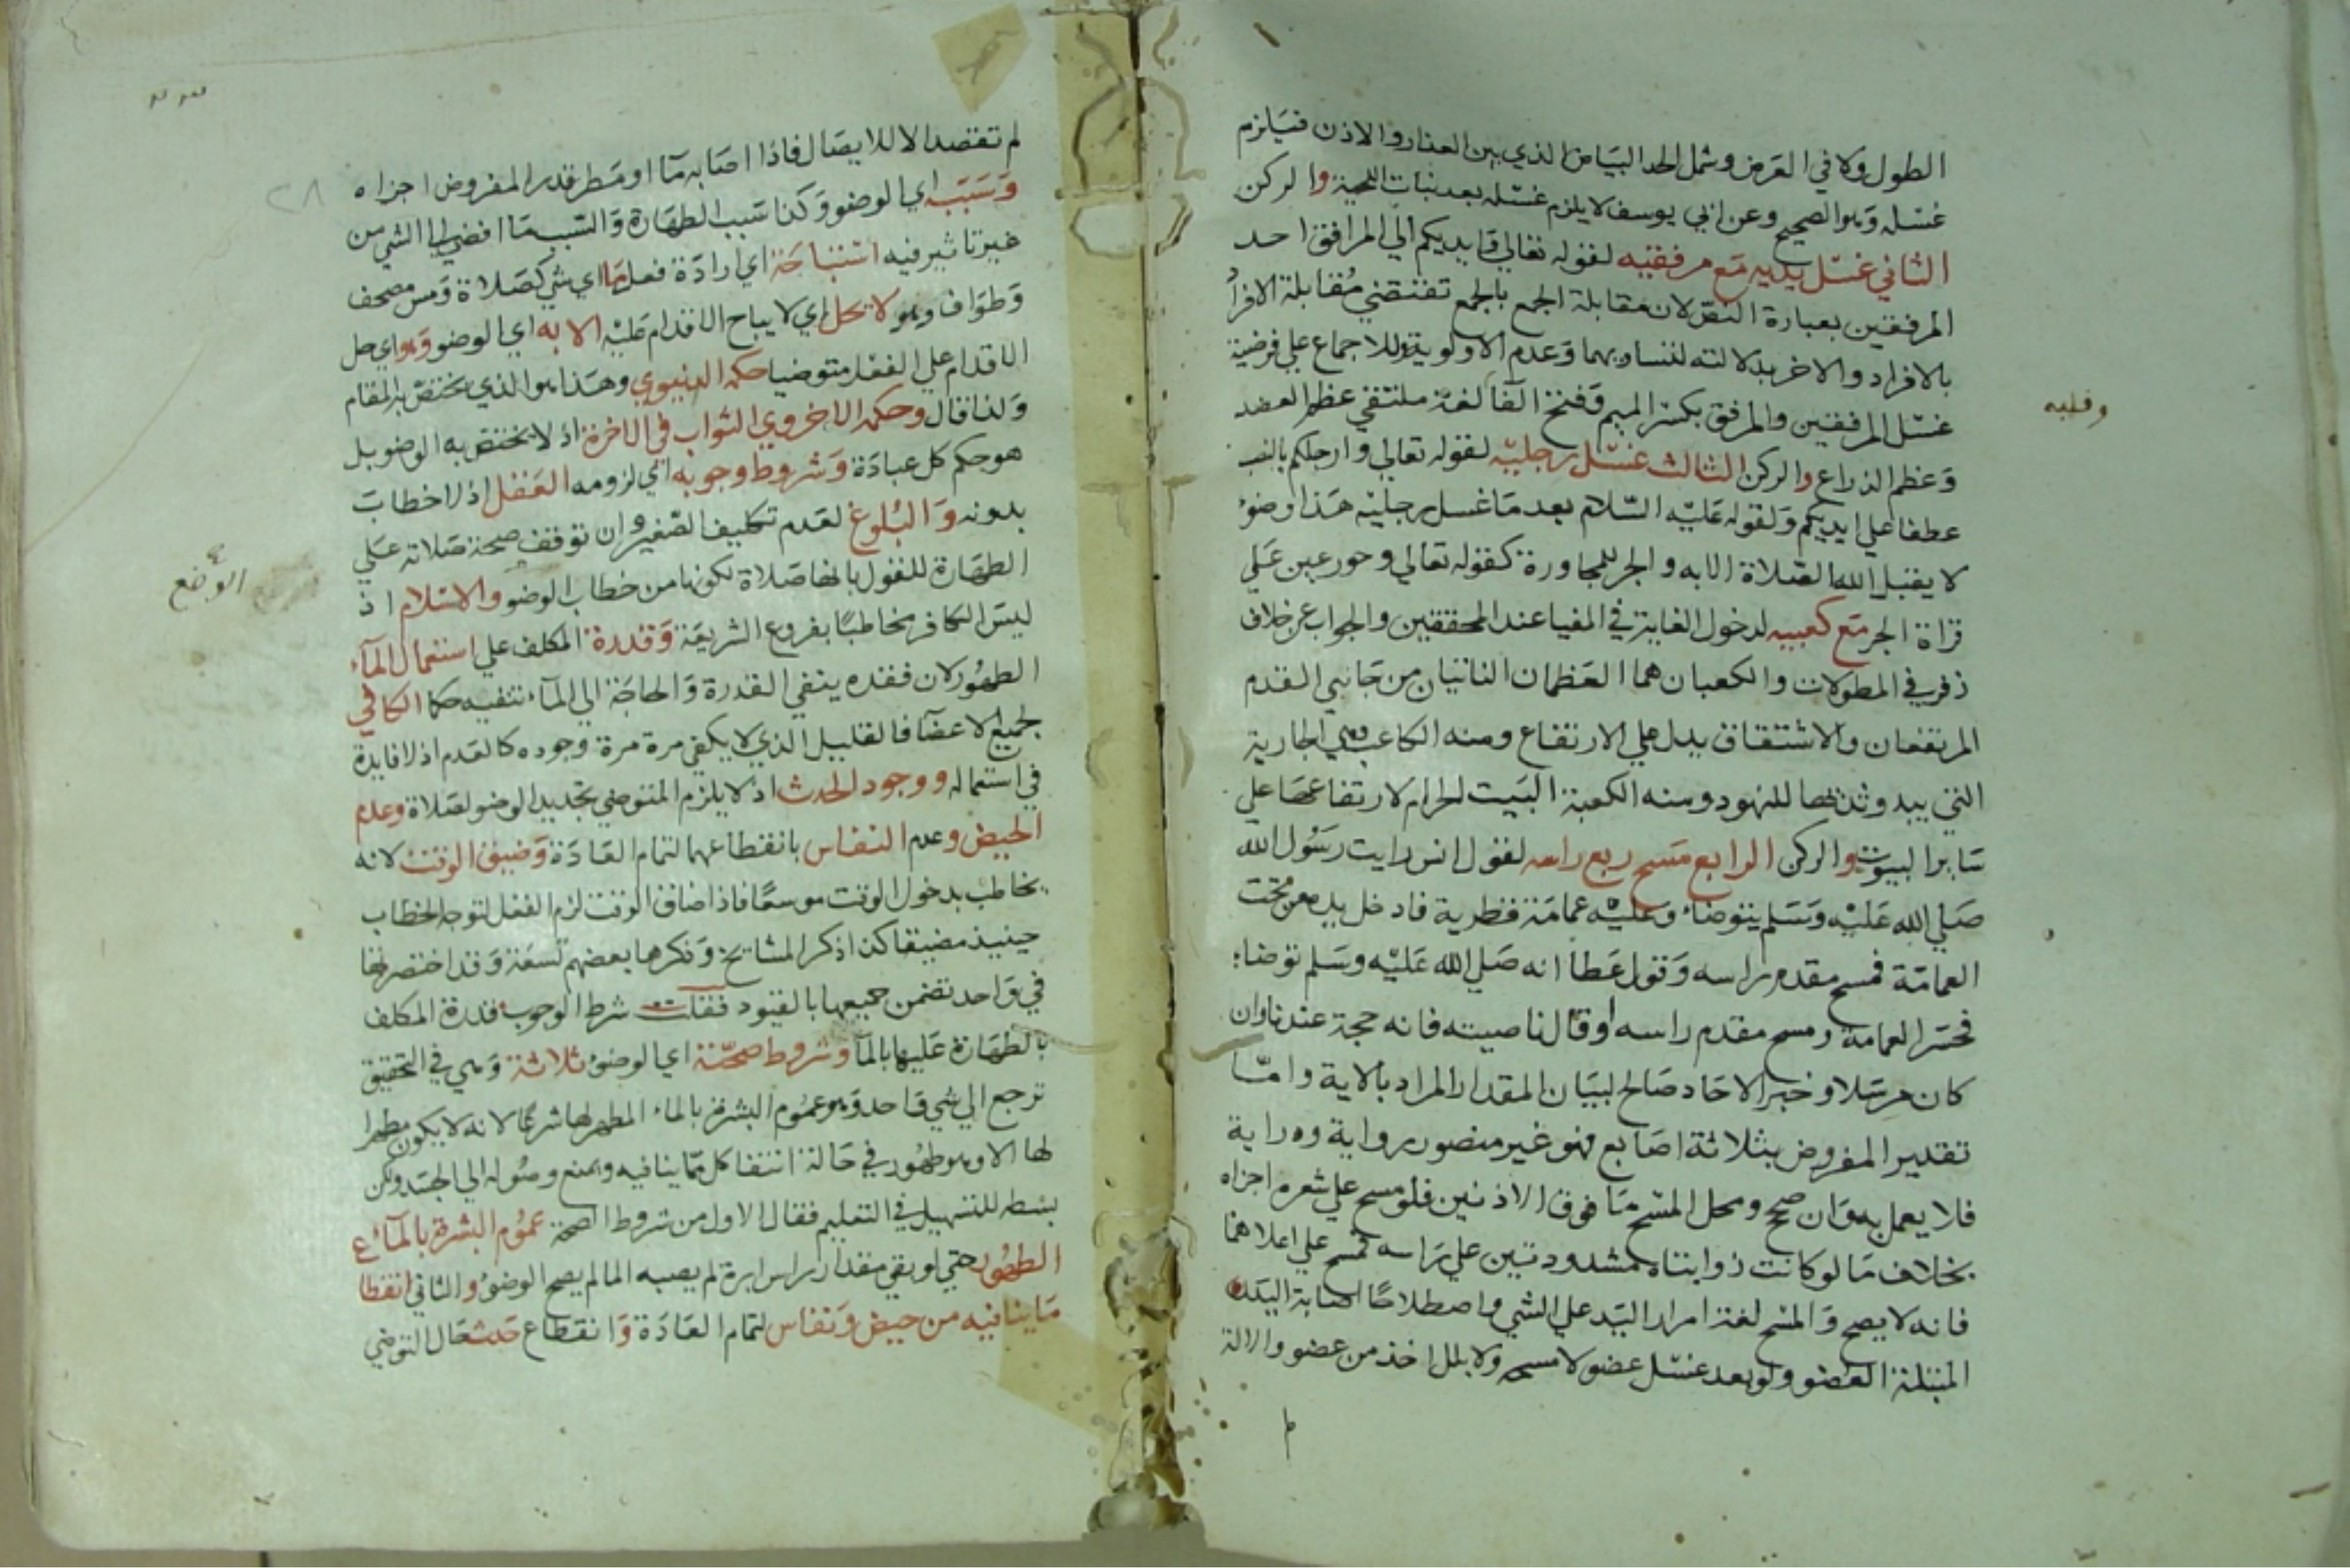 الطول ولا في العرض وشمل الحد البياض الذي بين العذار والاذن فيلزم
غسله وهو الصحيح وعن ابي يوسف لا يلزم غسله بعد نبات اللحية والركن
الثاني غسل يديه مع مرفقيه لقوله تعالي وايديكم الي المرافق احد
المرفقين بعبارة النص لان مقابلة الجمع بالجمع تقتضي مقابلة الافراد
بالافراد والاخر بدلالته لتساويهما وعدم الاولوية وللاجماع علي فرضية
غسل المرفقين والمرفق بكسر الميم وفتح الفا لغة ملتقي عظم العضد
وعظم الذراع والركن الثالث غسل رجليه لقوله تعالي وارجلكم بالنصب
عطفا علي ايديكم ولقوله عليه السلام بعد ما غسل رجليه هذا وضوء
لا يقبل الله الصلاة الا به والجر للمجاورة كقوله تعالي وحور عين علي
قراة الجر مع كعبيه لدخول الغاية في المغيا عند المحققين والجواب عن خلاف
زفر في المطولات والكعبان هما العظمان الناتيان من جانبي القدم
المرتفعان والاشتقاق يدل علي الارتفاع ومنه الكاعب وهي الجارية
التي يبدو ثديها للنهود ومنه الكعبة البيت الحرام لارتفاعها علي
ساير البيوت والركن الرابع مسح ربع راسه لقول انس رايت رسول الله
صلي الله عليه وسلم يتوضاء وعليه عمامة قطرية فادخل يده من تحت
العمامة فمسح مقدم راسه وقول عطا انه صلي الله عليه وسلم توضاء
فحسر العمامة ومسح مقدم راسه او قال ناصيته فانه حجة عندنا وان
كان مرسلا وخبر الاحاد صالح لبيان المقدار المراد بالاية واما
تقدير المفروض بثلاثة اصابع فهو غير منصور رواية ودراية
فلا يعمل به وان صح ومحل المسح ما فوق الاذنين فلو مسح علي شعره اجزاه
بخلاف ما لو كانت ذوابتاه مشدودتين علي راسه فمسح علي اعلاهما
فانه لا يصح والمسح لغة امرار اليد علي الشي واصطلاحا اصابة اليد
المبتلة العضو ولو بعد غسل عضو لا مسحه ولا ببلل اخذ من عضو والالة
وقلبه
لم تقصد الا للايصال فاذا اصابه مآ او مطر قدر المفروض اجزاه
وسببه اي الوضو وكذا سبب الطهارة والسبب ما افضي الي الشي من
غير تاثير فيه استباحة اي ارادة فعل ما اي شي كصلاة ومس مصحف
وطواف وهو لا يحل اي لا يباح الاقدام عليه الا به اي الوضو وهو اي حل
الاقدام علي الفعل متوضيا حكمه الدنيوي وهذا هو الذي يختص بالمقام
ولذا قال وحكمه الاخروي الثواب في الاخرة اذ لا يختص به الوضو بل
هو حكم كل عبادة وشروط وجوبه اي لزومه العقل اذ لا خطاب
بدونه والبلوغ لعدم تكليف الصغير وان توقف صحة صلاته علي
الطهارة للقول بانها صلاة لكونها من خطاب الوضو والاسلام اذ
الوضع
ليس الكافر مخاطبا بفروع الشريعة وقدرة المكلف علي استعمال المآء
الطهور لان فقده ينفي القدرة والحاجة الي المآء تنفيه حكما الكافي
لجميع الاعضآ فالقليل الذي لا يكفي مرة مرة وجوده كالعدم اذ لا فايدة
في استعماله ووجود الحدث اذ لا يلزم المتوضي تجديد الوضو لصلاة وعدم
الحيض وعدم النفاس بانقطاعهما لتمام العادة وضيق الوقت لانه
يخاطب بدخول الوقت موسعا فاذا ضاق الوقت لزم الفعل لتوجه الخطاب
حينيذ مضيقا كذا ذكر المشايخ وذكرها بعضهم تسعة وقد اختصرتها
في واحد تضمن جميعها بالقيود فقلت شرط الوجوب قدرة المكلف
بالطهارة عليها بالمآ وشروط صحته اي الوضو ثلاثة وهي في التحقيق
ترجع الي شي واحد وهو عموم البشرة بالماء المطهر لها شرعا لانه لا يكون مطهرا
لها الا وهو طهور في حالة انتفا كل ما ينافيه ويمنع وصوله الي الجسد ولكن
بسطه للتسهيل في التعليم فقال الاول من شروط الصحة عموم البشرة بالمآء
الطهور حتي لو بقي مقدار راس ابرة لم يصبه الما لم يصح الوضو والثاني انقطاع
ما ينافيه من حيض ونفاس لتمام العادة وانقطاع حدث حال التوضي